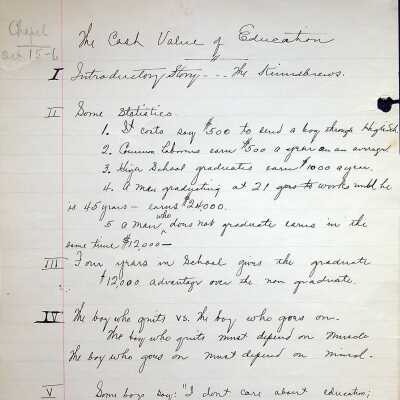 Chapel
The Cash Value of Education
15-6
I Introductory Story - - - The Kinnebrews.
II Some Statistics.
1. It costs say $500 to send a boy through High Sch
2. Common Laborers earn $500 a year on an average
3. High School graduates earn $1000 a year.
4. A man graduating at 21 goes to work until he
is 45 years - earns $24000.
5 a man who does not graduate earns in the
same time $12000 -
III Four years in School gives the graduate
$12000 advantage over the non graduate.
IV The boy who quits vs. the boy who goes on.
The boy who quits must depend on Muscle
The boy who goes on must depend on Mind.
V Some boys say: "I dont care about education;